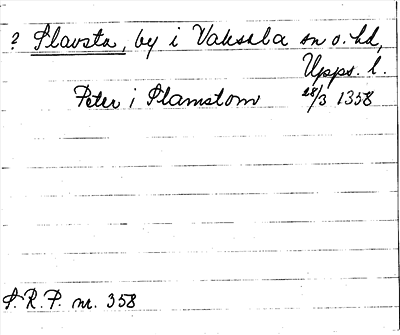 ? Slavsta, by i Vaksala sn o. hd,
Upps. l.
Peter i Slamstom 28/3 1358
S.R.P. nr. 358